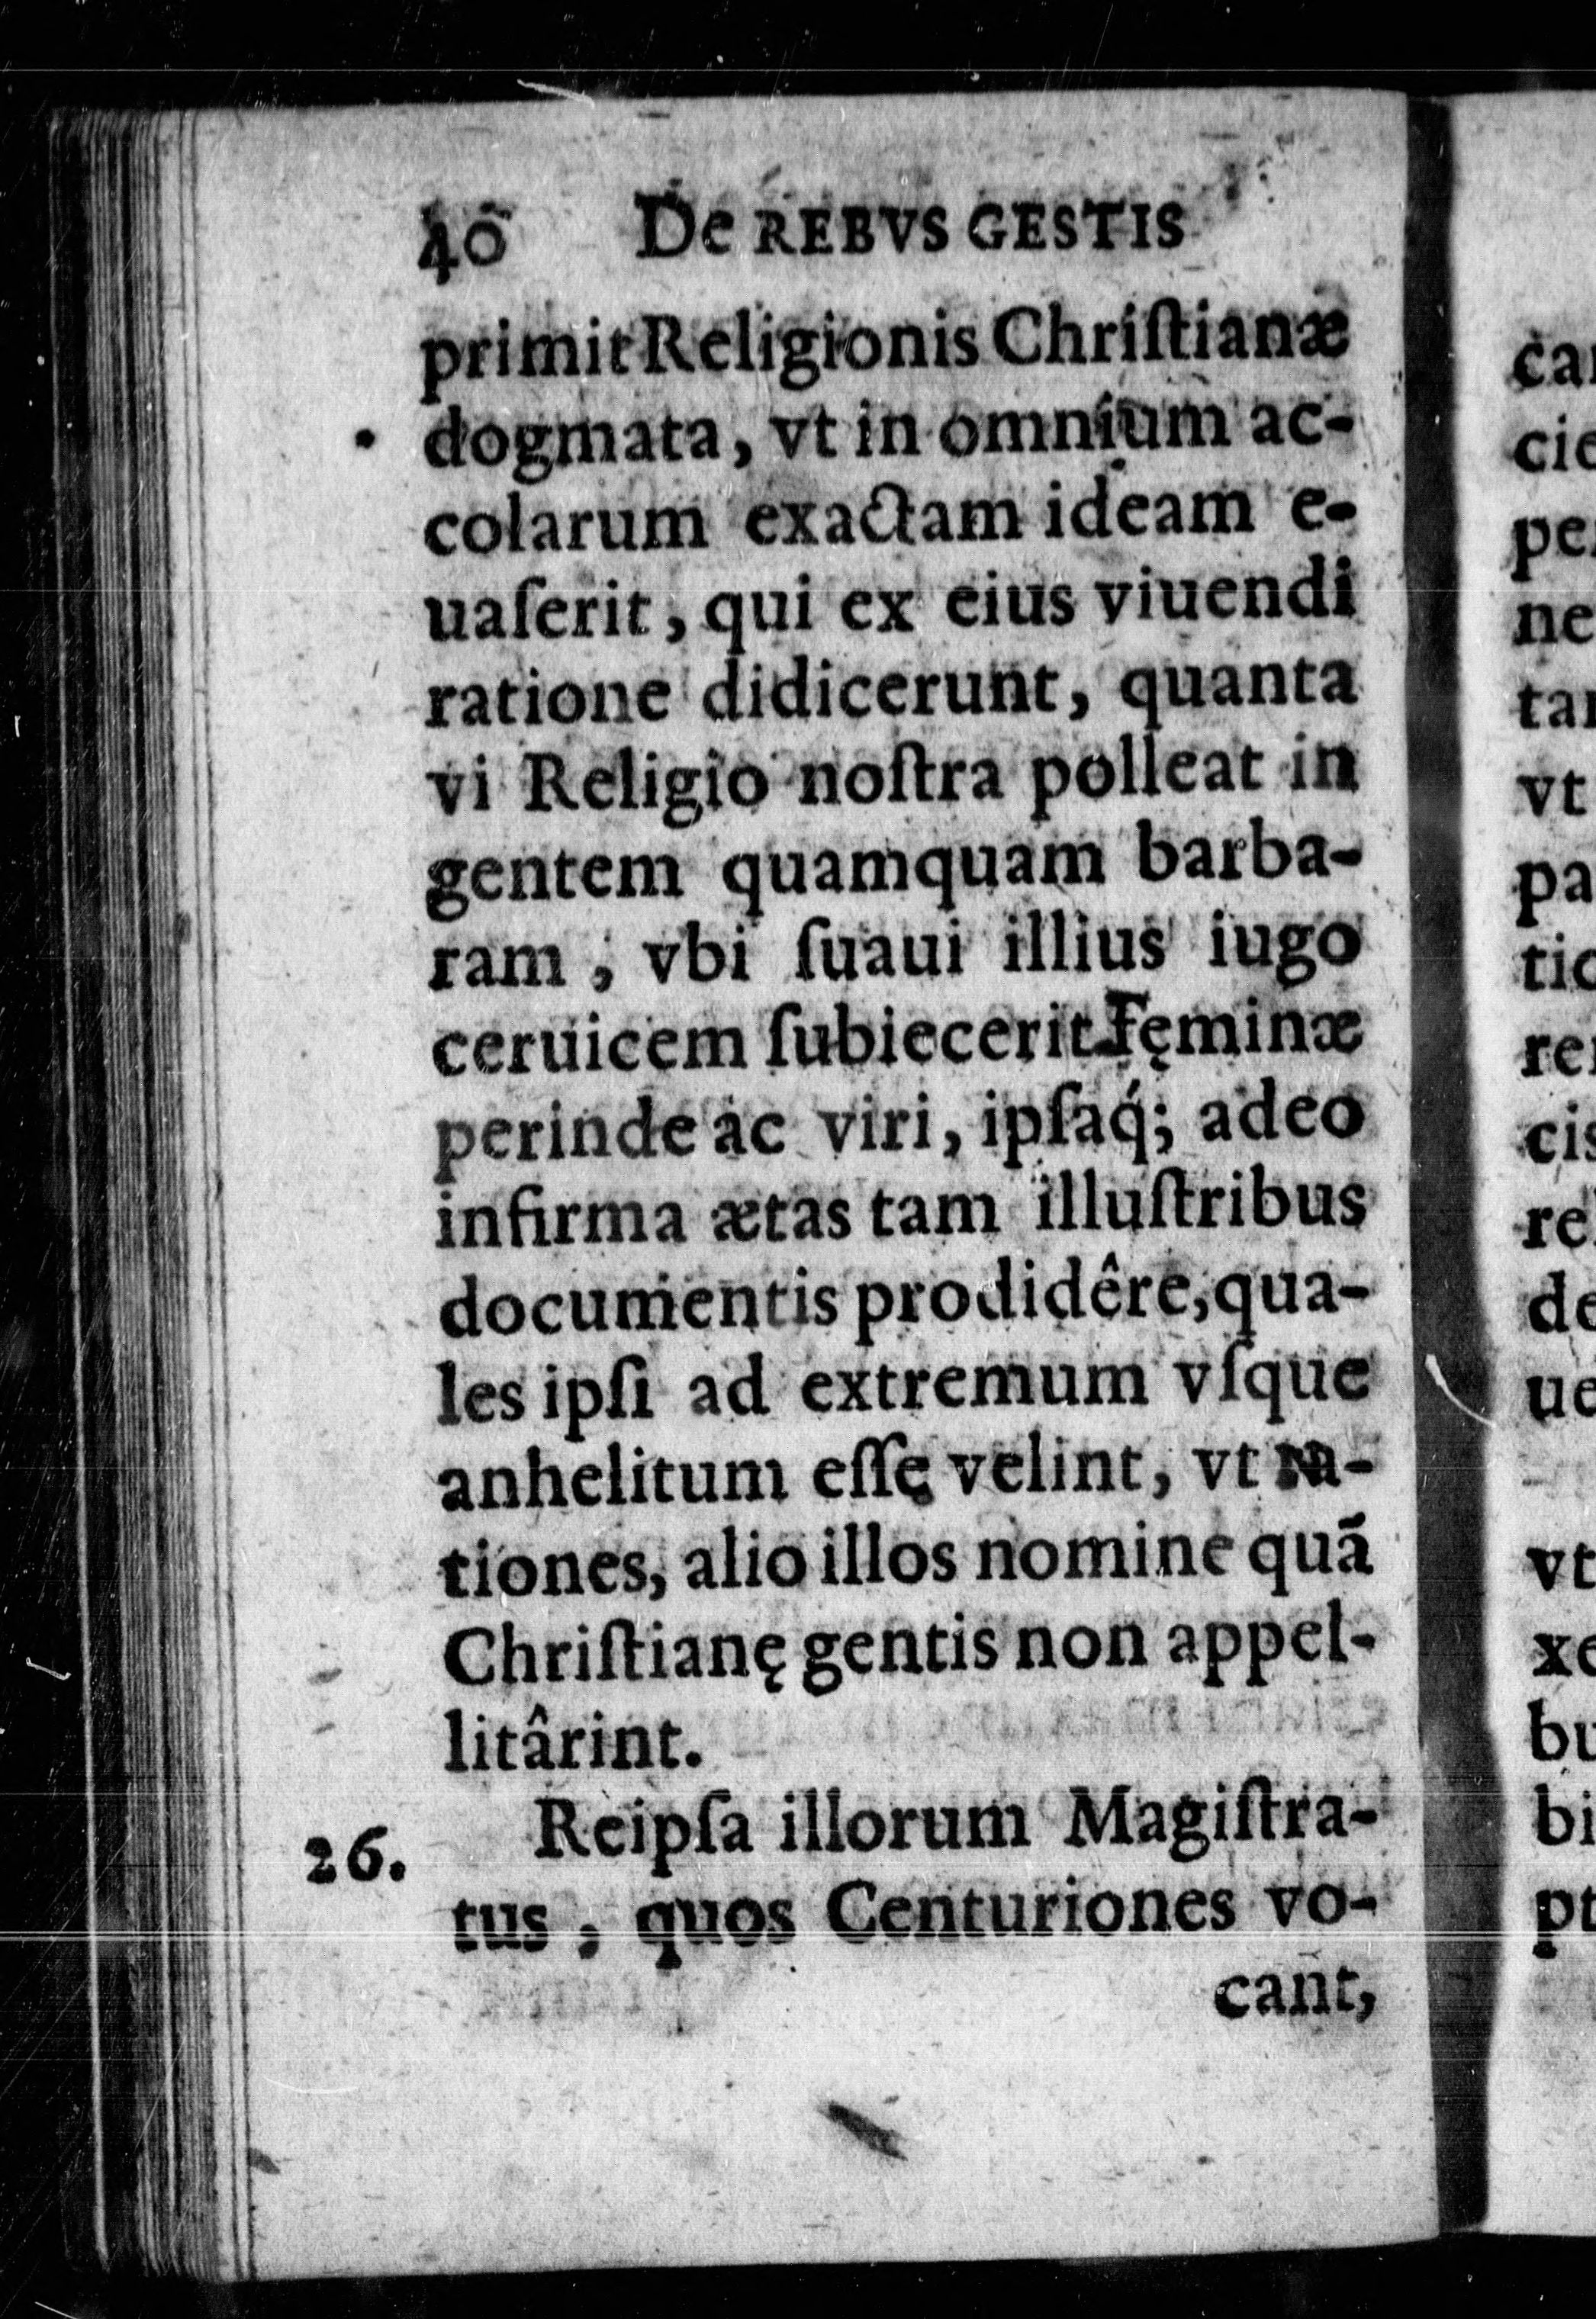 40 De REBVS GESTIS
primit Religionis Chriſtianæ
dogmata, vt in omnium ac-
colarum exactam ideam e-
uaſerit, qui ex eius viuendi
ratione didicerunt, quanta
vi Religio noſtra polleat in
gentem quamquam barba-
ram, vbi ſuaui illius iugo
ceruicem ſubiecerit. Fęminæ
perinde ac viri, ipſaq́; adeo
infirma ætas tam illuſtribus
documentis prodidêre, qua-
les ipſi ad extremum vſque
anhelitum eſſę velint, vt na-
tiones, alio illos nomine quã
Chriſtianę gentis non appel-
litârint.
26. Reipſa illorum Magiſtra-
tus, quos Centuriones vo-
cant,